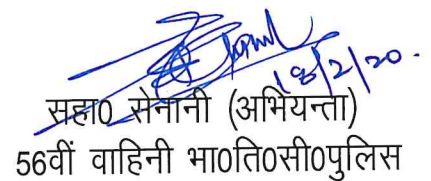 18/2/20.
सहा0 सेनानी (अभियन्ता)
56वीं वाहिनी भा0ति0सी0पुलिस